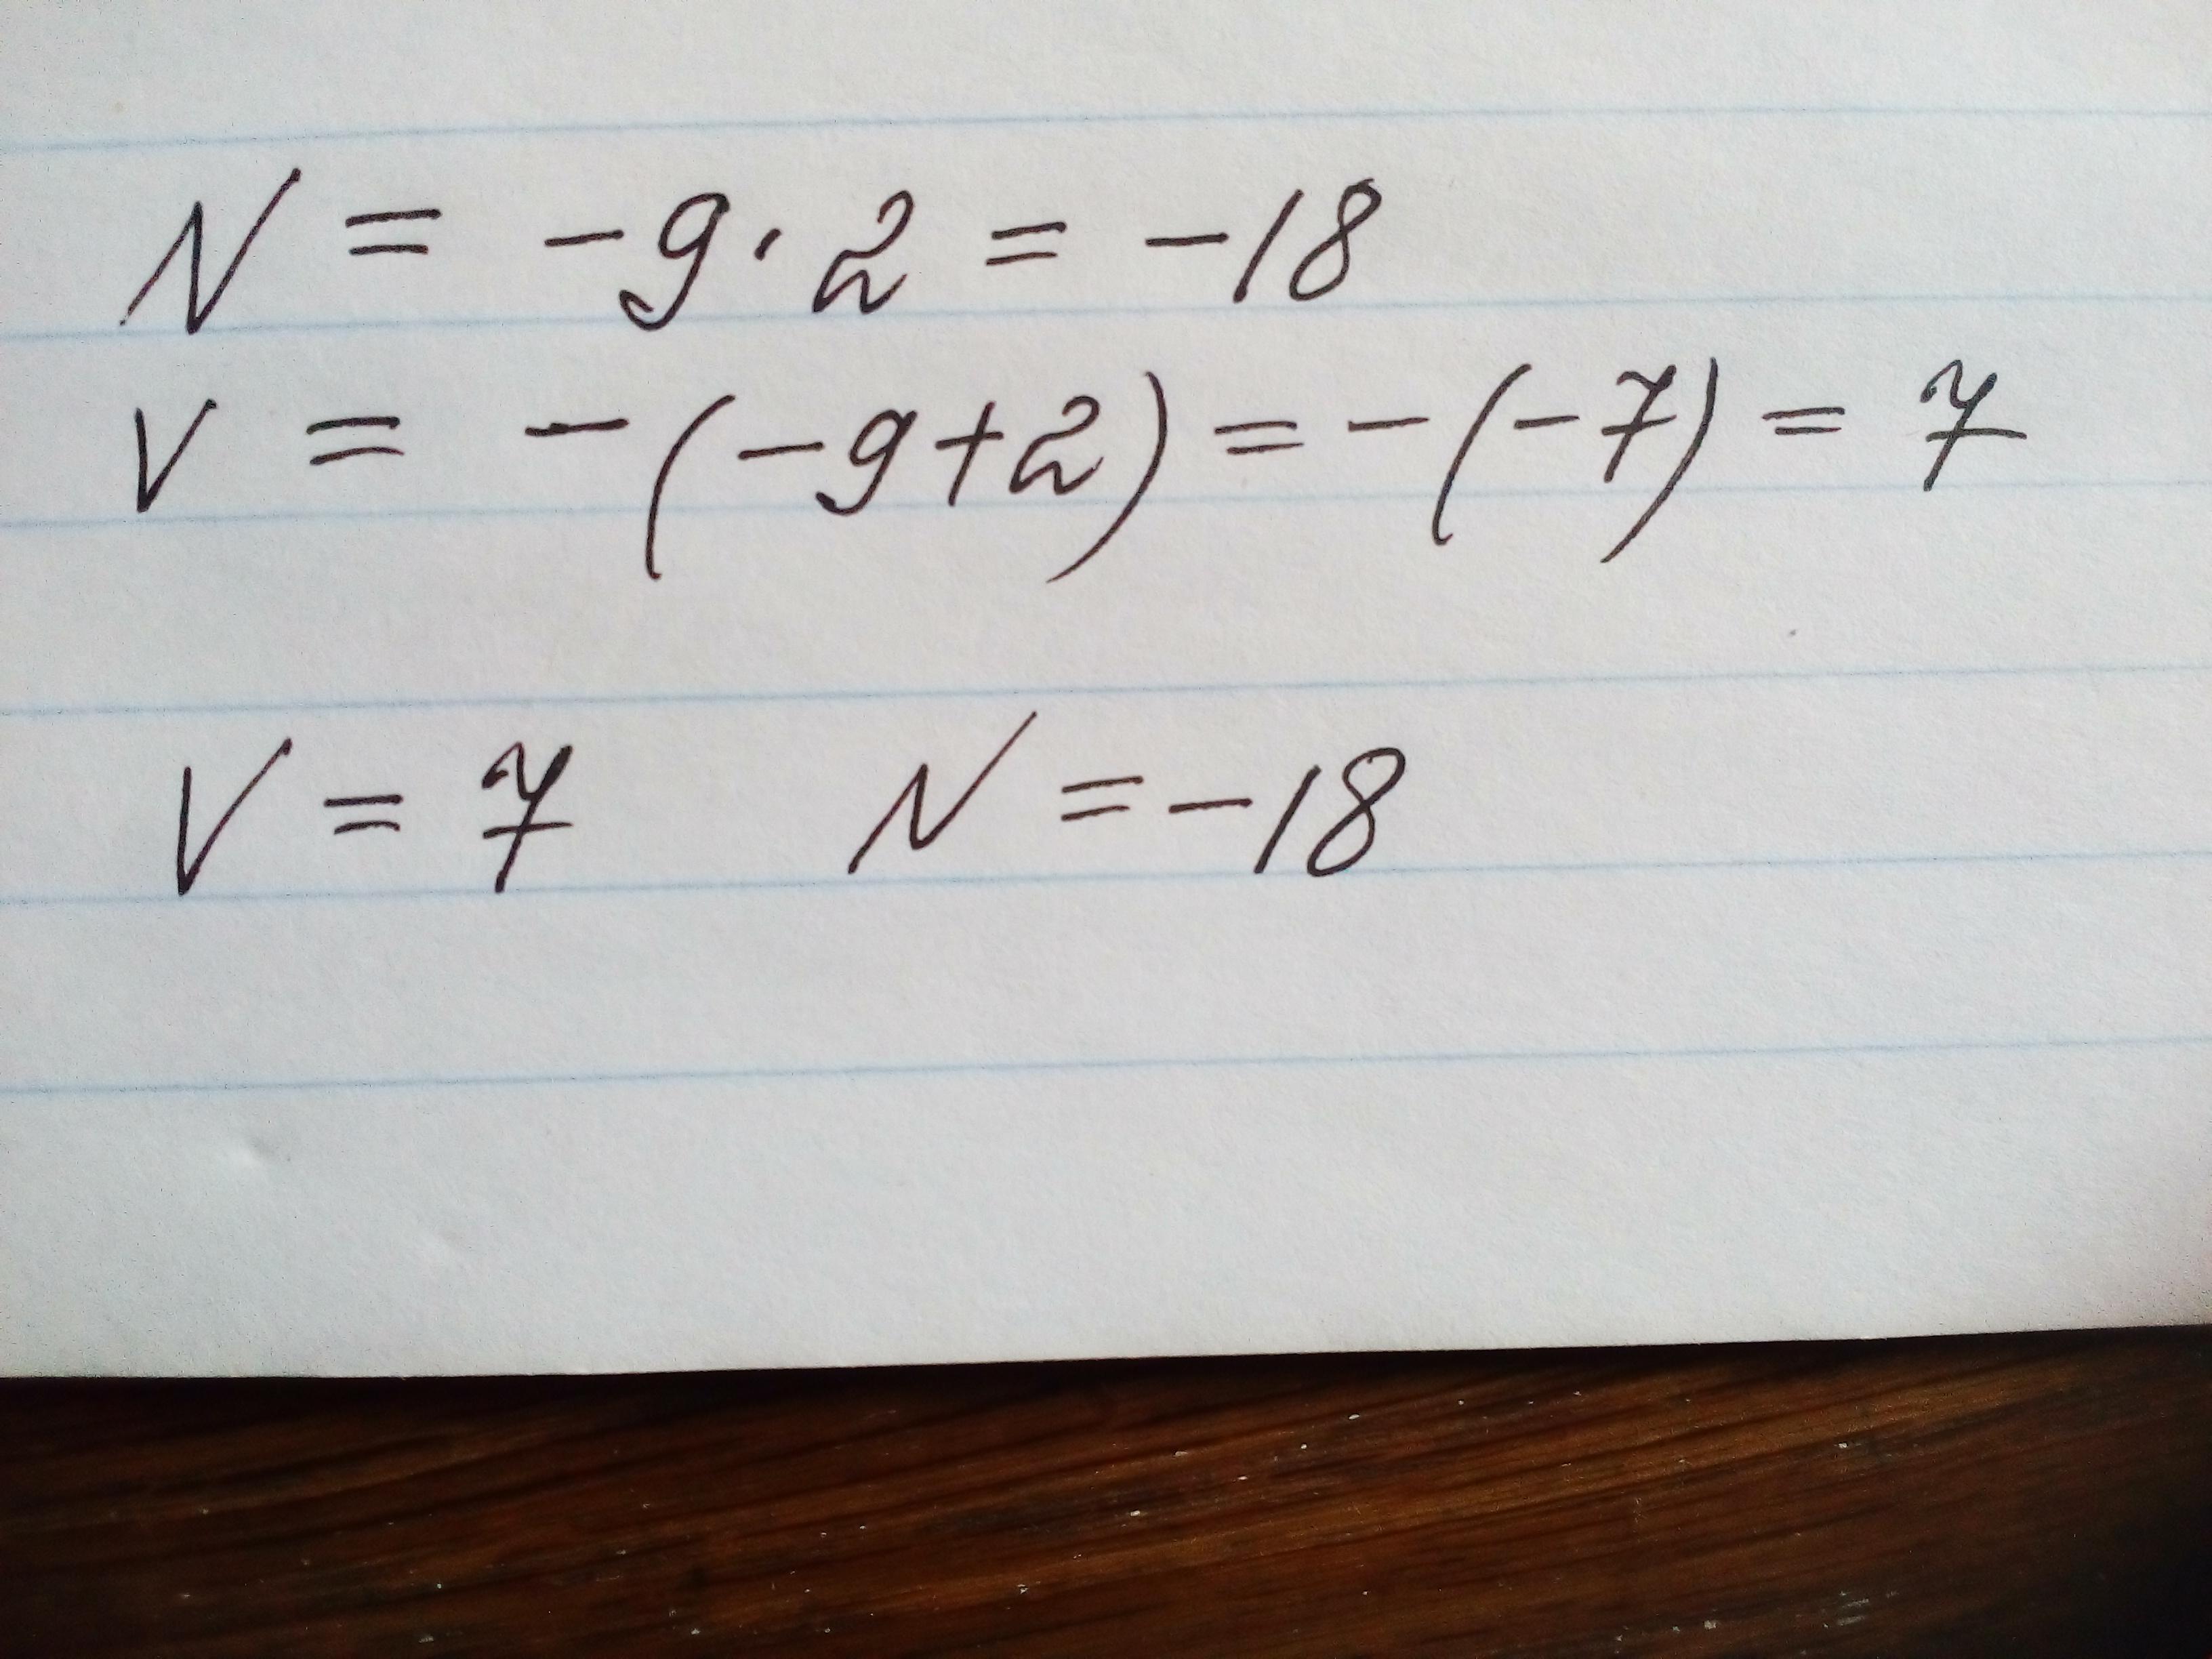 N = -9 · 2 = -18
V = -(-9+2) = -(-7) = 7
V = 7 N = -18